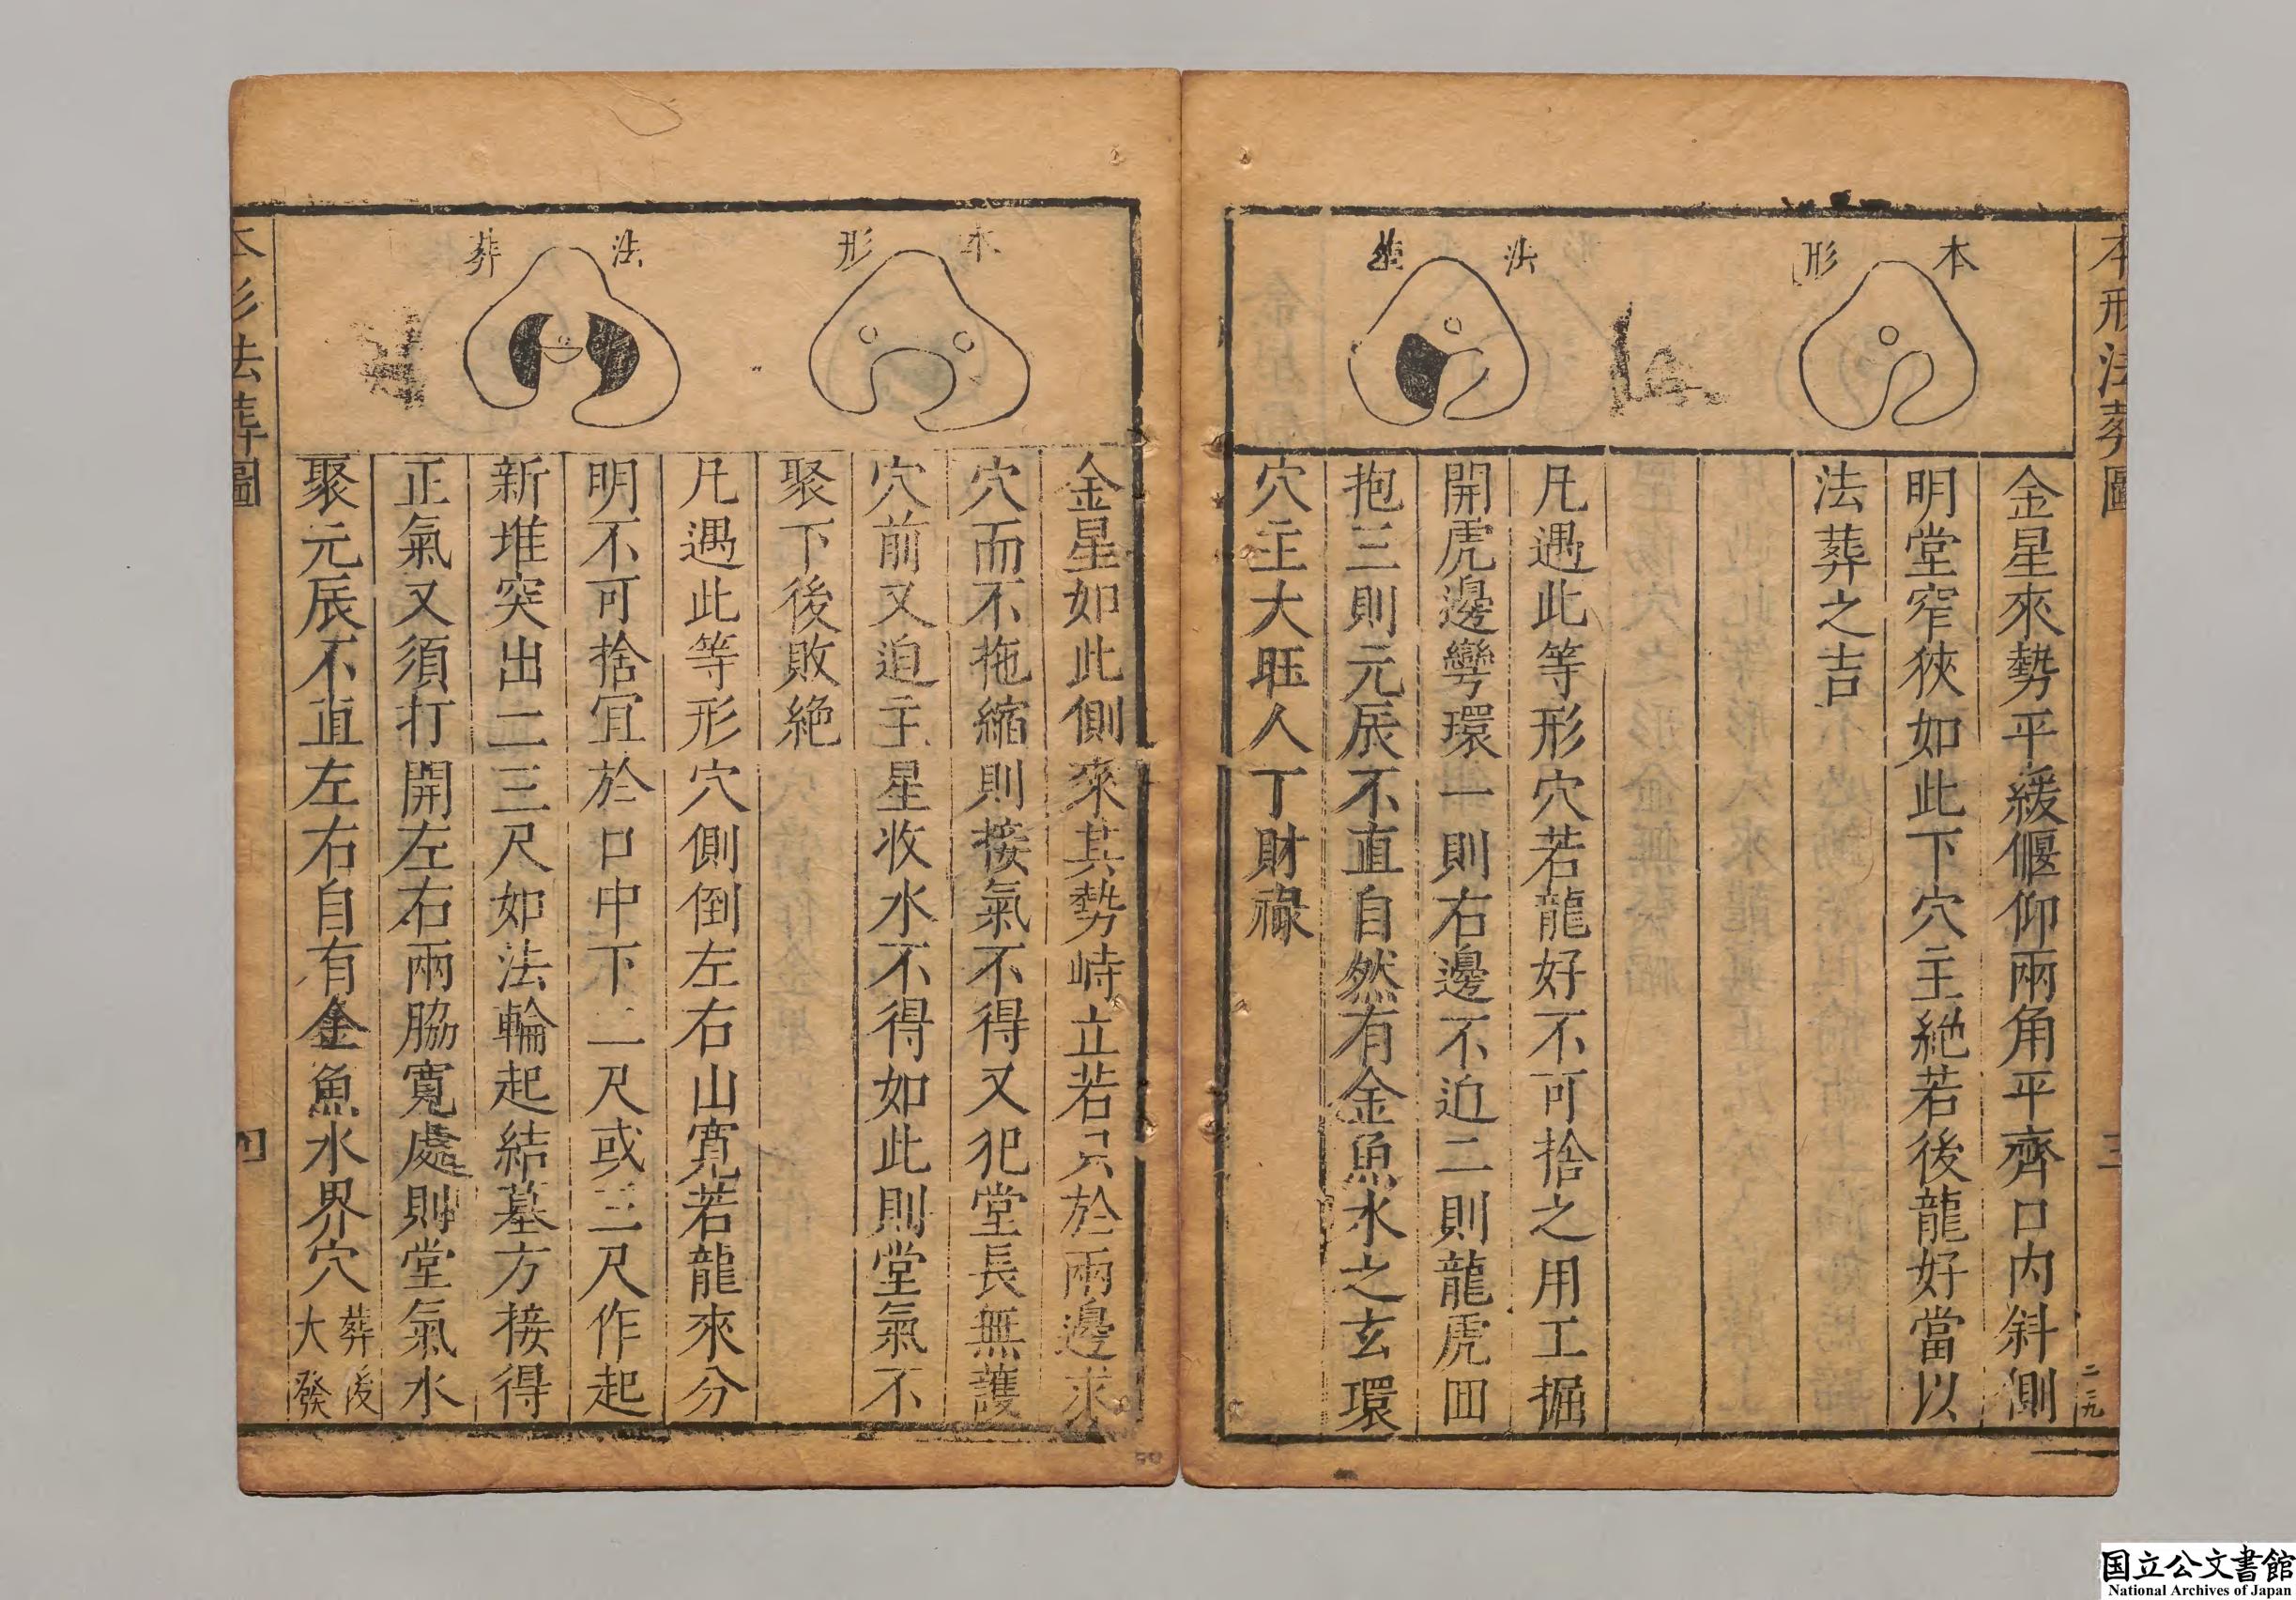 本形法葬圖
三
二三九
本形
法葬
金星來勢平緩偃仰兩角平齊口內斜側
明堂窄狹如此下穴主絕若後龍好當以
法葬之吉
凡遇此等形穴若龍好不可捨之用工掘
開虎邊彎環一則右邊不迫二則龍虎回
抱三則元辰不直自然有金魚水之玄環
穴主大旺人丁財祿
本形
法葬
金星如此側來其勢峙立若只於兩邊求
穴而不拖縮則接氣不得又犯堂長無護
穴前又迫主星收水不得如此則堂氣不
聚下後敗絕
凡遇此等形穴側倒左右山寬若龍來分
明不可捨宜於口中下二尺或三尺作起
新堆突出二三尺如法輪起結墓方接得
正氣又須打開左右兩脇寬處則堂氣水
聚元辰不直左右自有金魚水界穴葬後大發
本形法葬圖
四
国立公文書館
National Archives of Japan